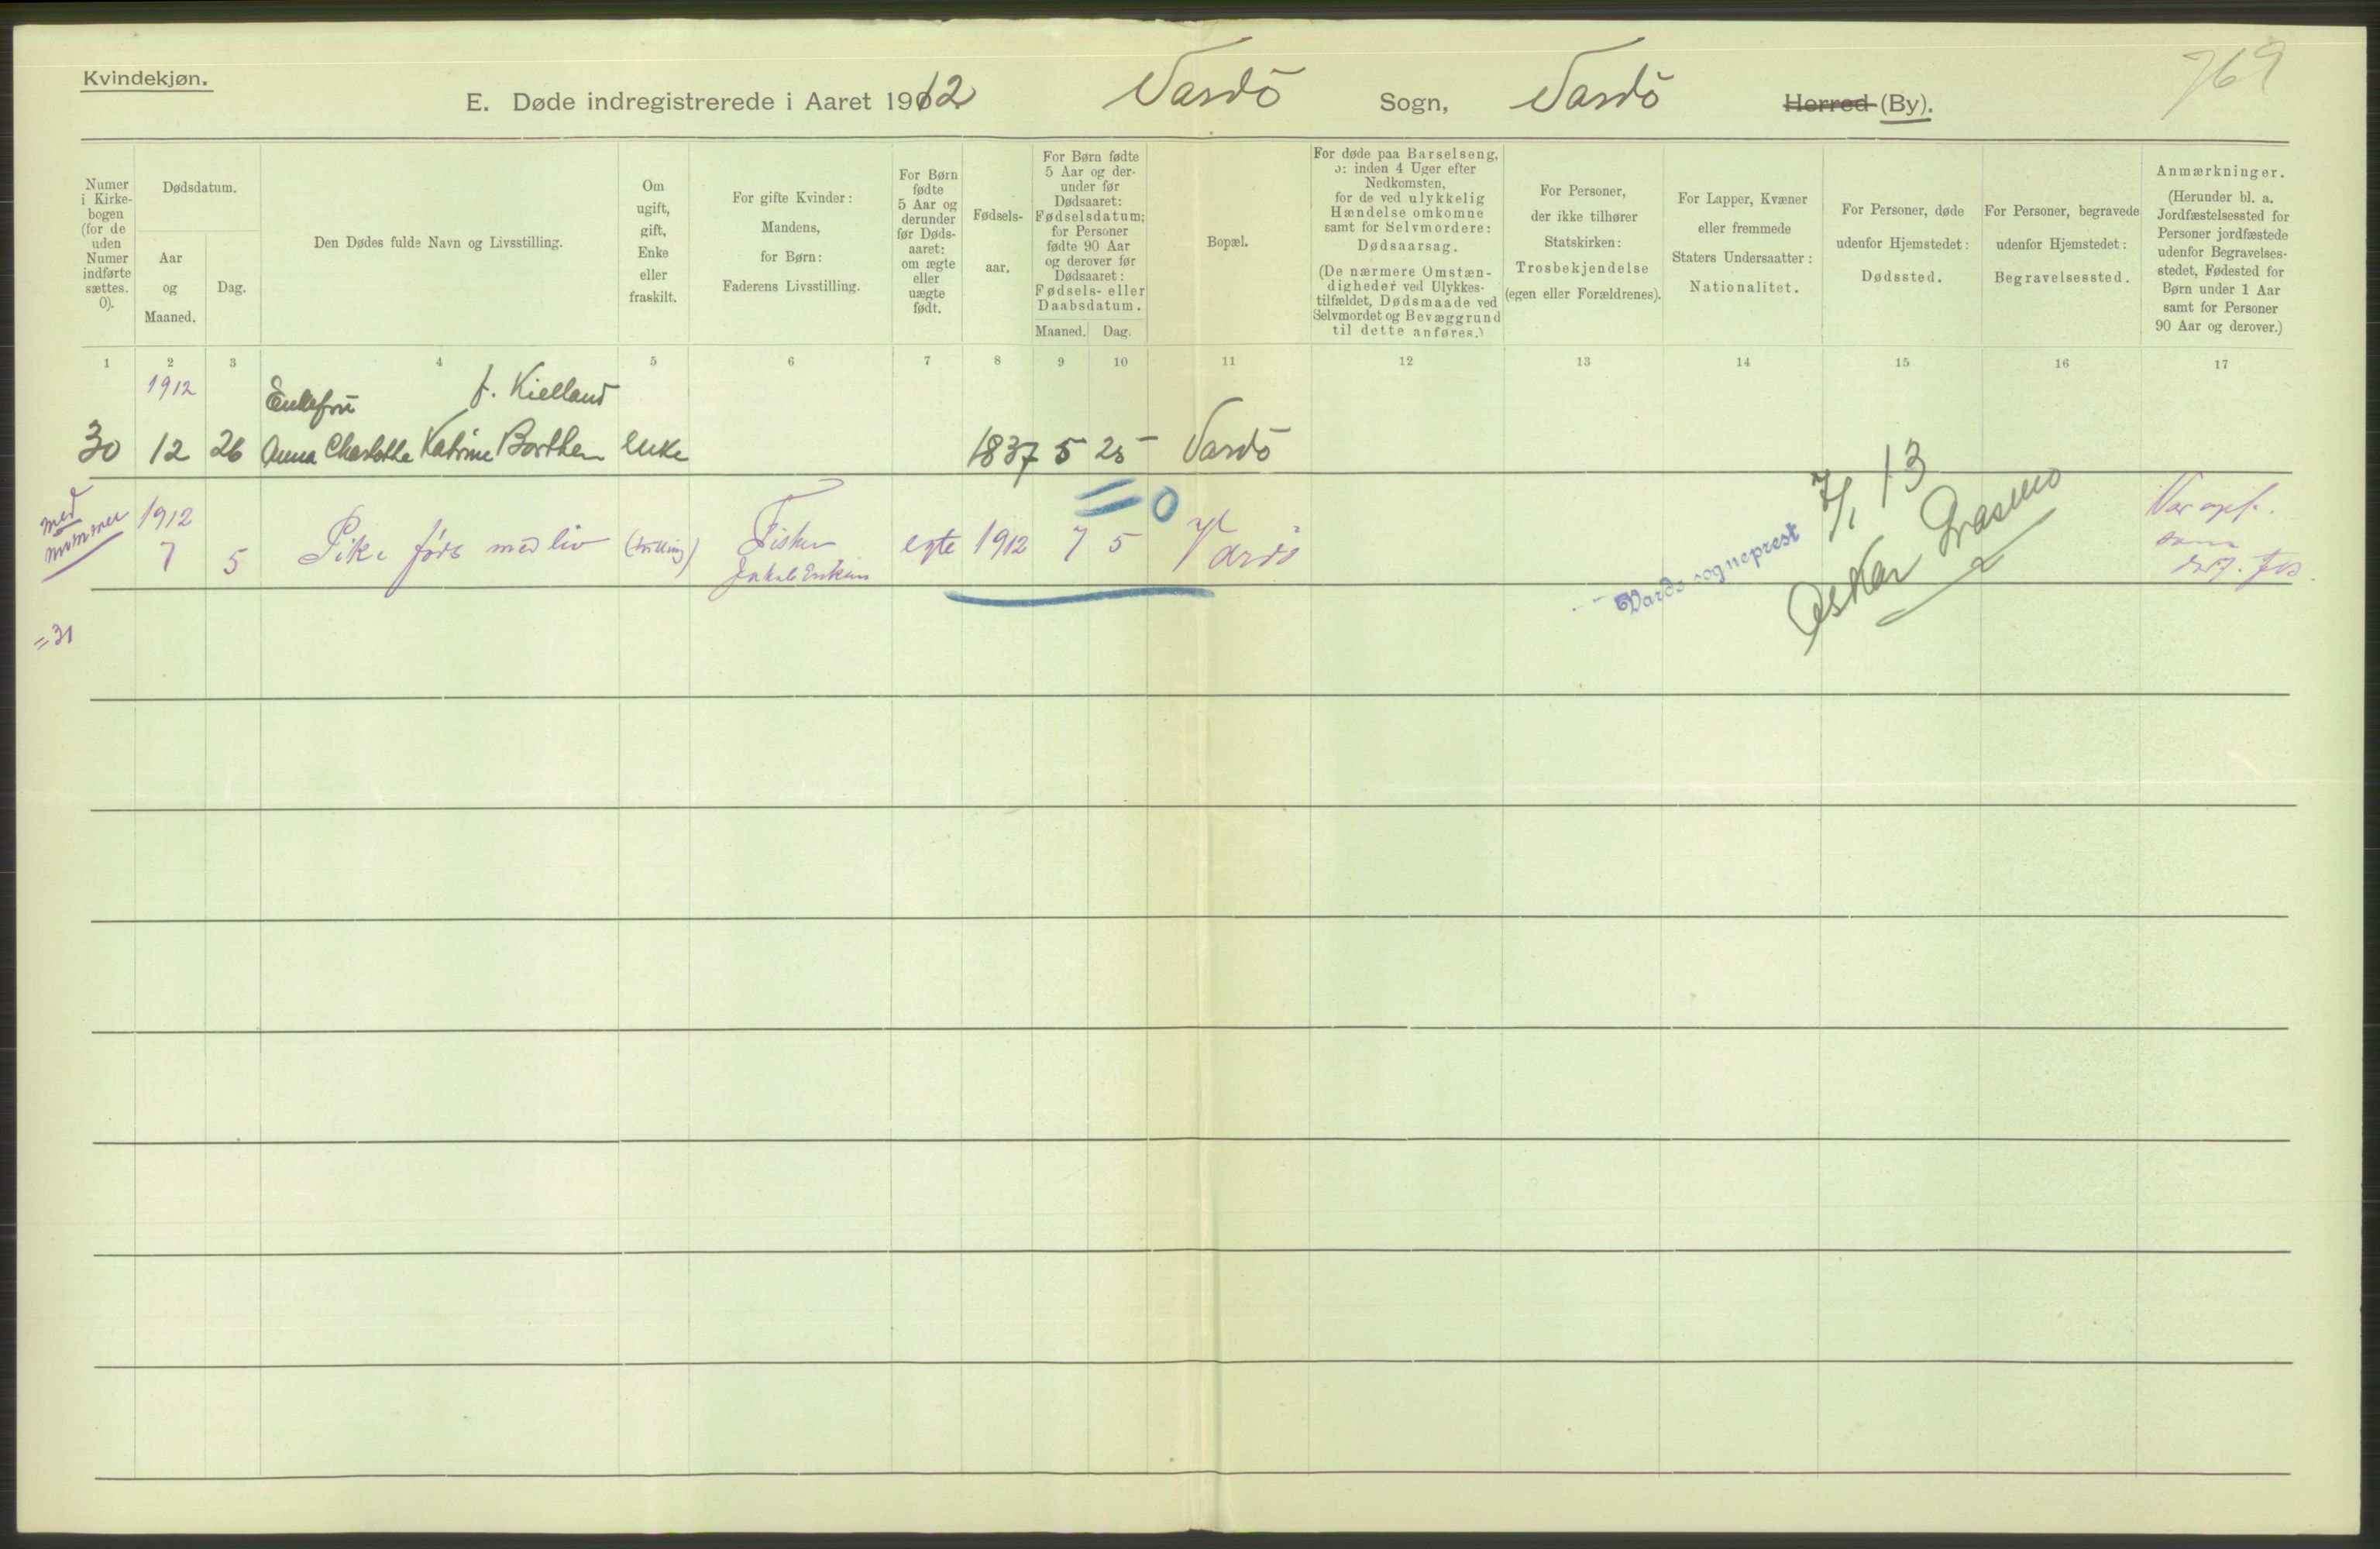 Kvindekjøn.
769
E. Døde indregistrerede i Aaret 1912 Vardö Sogn, Vardö Herred (By).
Numer i Kirke-bogen (for de uden Numer indførte sættes. 0).
Dødsdatum.
Aar og Maaned.
Dag.
Den Dødes fulde Navn og Livsstilling.
Om ugift, gift, Enke eller fraskilt.
For gifte Kvinder: Mandens, for Børn: Faderens Livsstilling.
For Børn fødte 5 Aar og derunder før Døds-aaret: om ægte eller uægte født.
Fødsels-aar.
For Børn fødte 5 Aar og der-under før Dødsaaret: Fødselsdatum; for Personer fødte 90 Aar og derover før Dødsaaret: Fødsels- eller Daabsdatum.
Maaned. Dag.
Bopæl.
For døde paa Barselseng, ɔ: inden 4 Uger efter Nedkomsten, for de ved ulykkelig Hændelse omkomne samt for Selvmordere: Dødsaarsag.
(De nærmere Omstæn-digheder ved Ulykkes-tilfældet, Dødsmaade ved Selvmordet og Bevæggrund til dette anføres.)
For Personer, der ikke tilhører Statskirken: Trosbekjendelse (egen eller Forældrenes).
For Lapper, Kvæner eller fremmede Staters Undersaatter: Nationalitet.
For Personer, døde udenfor Hjemstedet: Dødssted.
For Personer, begravede udenfor Hjemstedet: Begravelsessted.
Anmærkninger.
(Herunder bl. a. Jordfæstelsessted for Personer jordfæstede udenfor Begravelses-stedet, Fødested for Børn under 1 Aar samt for Personer 90 Aar og derover.)
1 2 3 4 5 6 7 8 9 10 11 12 13 14 15 16 17
1912 Enkefru f. Kielland
30 12 26 Anna Charlotte Katrine Borthen enke 1837 5 25 Vardö
= 0
med nummer
1912
7 5 Pike föds med liv (trilling) Fisker egte 1912 7 5 Vardö
Jakob Eriksen
Var opf.
som
dødf. før.
7/1 13
Vardø sogneprest
Oskar Grasmo
=31